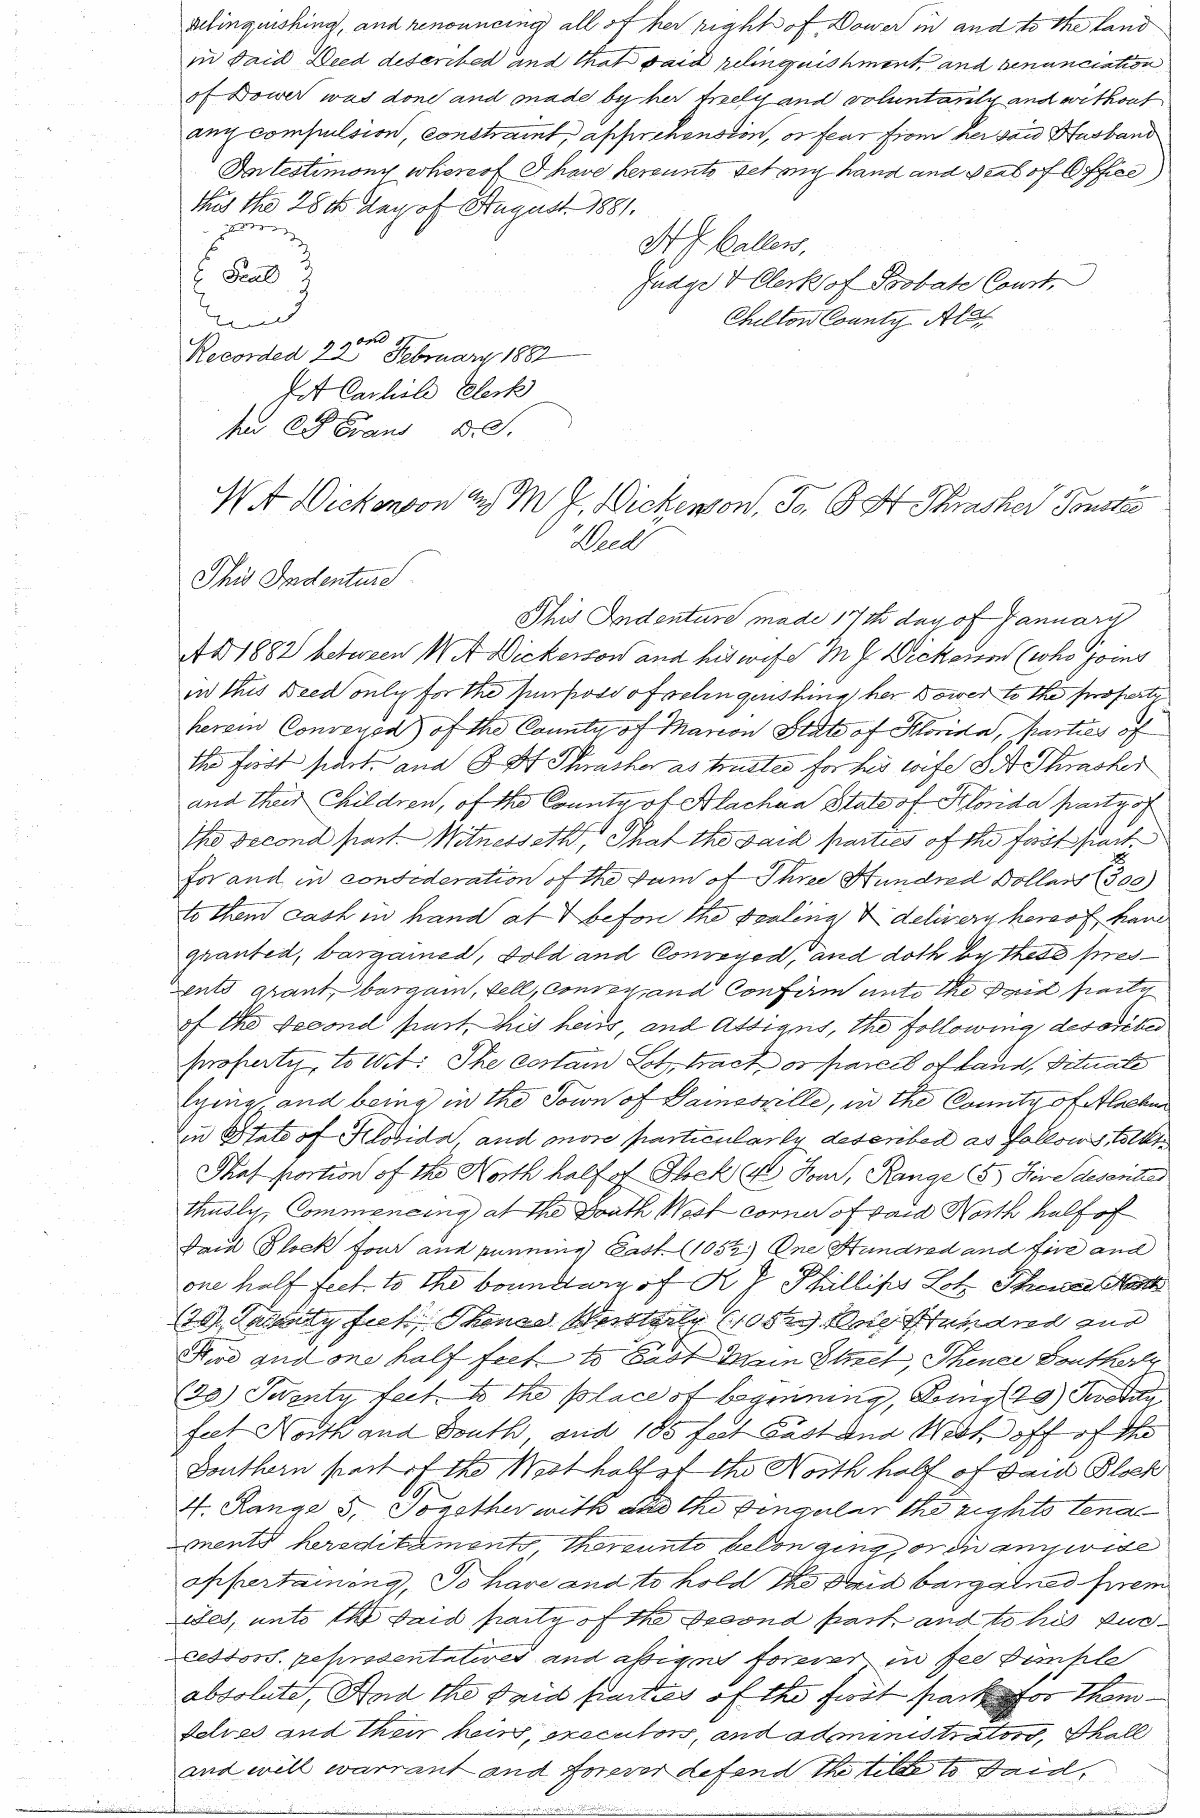 relinquishing, and renouncing all of her right of Dower in and to the land
in said Deed described and that said relinquishment, and renunciation
of Dower was done and made by her freely and voluntarily and without
any compulsion, constraint, apprehension, or fear from her said Husband
In testimony whereof I have hereunto set my hand and seal of Office
this the 28th day of August 1881.
Seal
Callens,
Judge & Clerk of Probate Court,
Chelton County Ala,
Recorded 22nd February 1882
J A Carlisle Clerk
per Evans D.C.
W A Dickenson and M J, Dickenson, To, B H Thrasher "Trustee"
"Deed"
This Indenture
This Indenture made 17th day of January
AD 1882 between W A Dickerson and his wife M J Dickerson (who joins
in this Deed only for the purpose of relinquishing her Dower to the property
herein Conveyed) of the County of Marion State of Florida, parties of
the first part. and B H Thrasher as trustee for his wife S A Thrasher
and their Children, of the County of Alachua State of Florida party of
the second part. Witnesseth, That the said parties of the first part.
for and in consideration of the sum of Three Hundred Dollars (300)
to them cash in hand at & before the sealing & delivery hereof, have
granted, bargained, sold and Conveyed, and doth by these pres-
ents grant, bargain, sell, convey, and Confirm unto the said party
of the second part, his heirs, and Assigns, the following described
property, to wit: The certain Lot, tract, or parcel of land, situate
lying and being in the Town of Gainesville, in the County of Alachua
in State of Florida, and more particularly described as follows, to wit:
That portion of the North half of Block (4) Four, Range (5) Five described
thusly, Commencing at the South West corner of said North half of
said Block four and running East (105½) One Hundred and five and
one half feet to the boundary of R J Phillips Lot, Thence North
(20) Twenty feet, Thence Westerly (105½) One Hundred and
Five and one half feet to East Main Street, Thence Southerly
(20) Twenty feet to the place of beginning, Being (20) Twenty
feet North and South, and 105 feet East and West, off of the
Southern part of the West half of the North half of said Block
4. Range 5, Together with and the singular the rights tena-
ments hereditaments, thereunto belonging, or in anywise
appertaining, To have and to hold the said bargained prem
ises, unto the said party of the second part and to his suc-
cessors. representatives and assigns forever in fee simple
absolute, And the said parties of the first part for them-
selves and their heirs, executors, and administrators, Shall
and will warrant and forever defend the title to said,